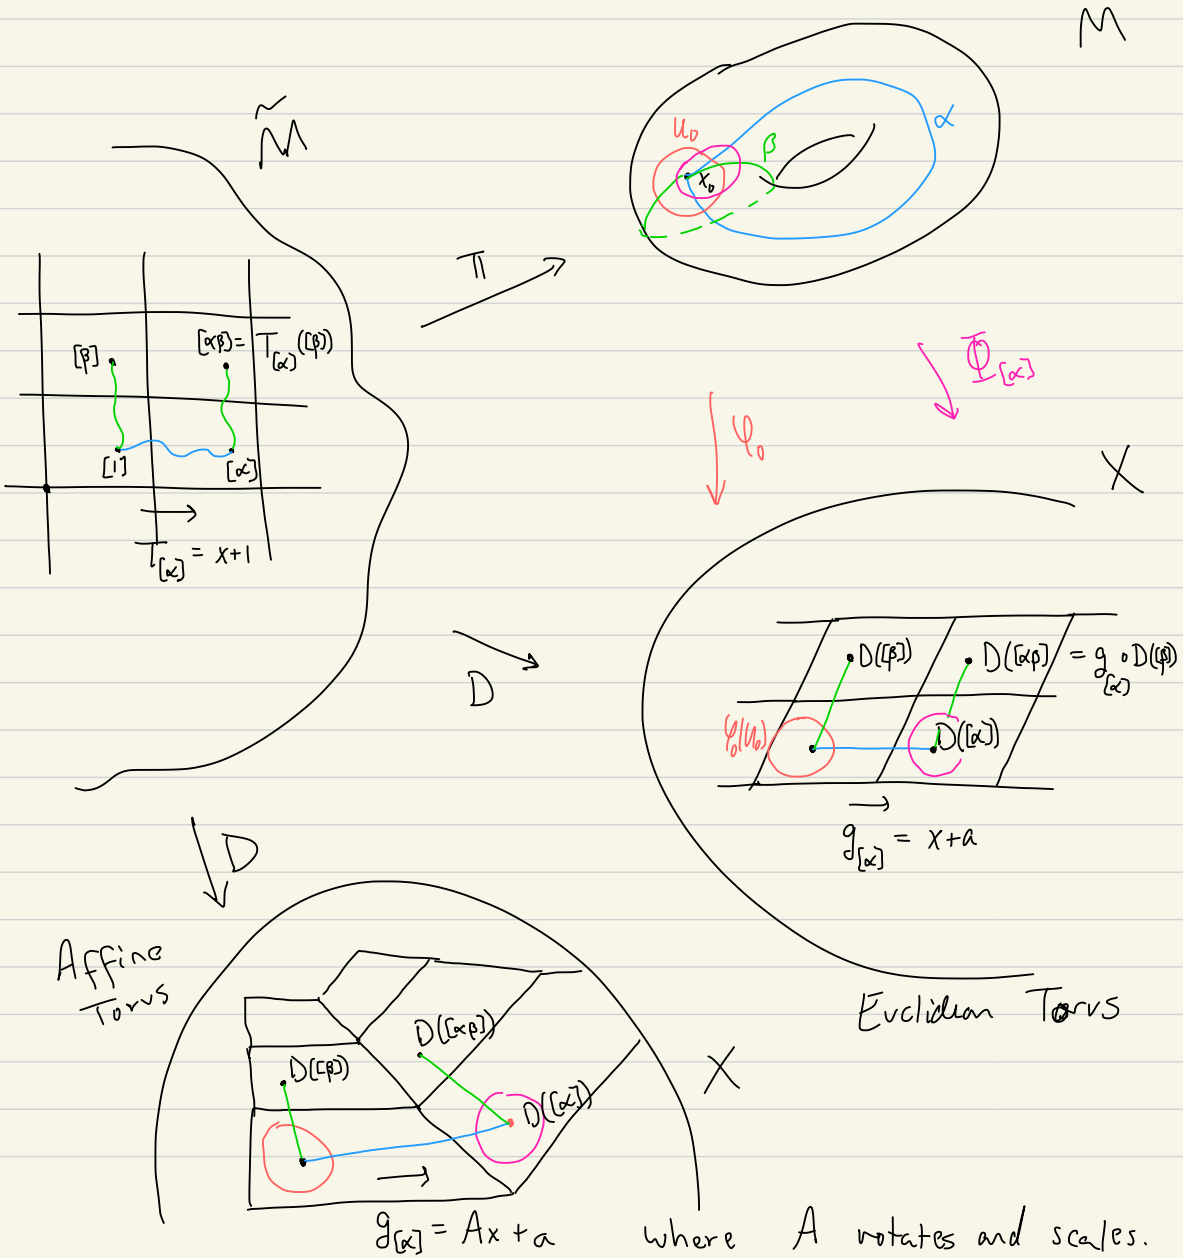 M
M̃
α
U₀
β
x₀
π
[β]
[αβ] = T_[α]([β])
[1]
[α]
T_[α] = x+1
Φ_[α]
φ₀
X
D
D([β])
D([αβ]) = g_[α] ∘ D([β])
φ₀(U₀)
D([α])
g_[α] = x+a
Euclidean Torus
D
Affine
Torus
D([αβ])
D([β])
X
D([α])
g_[α] = Ax+a where A rotates and scales.